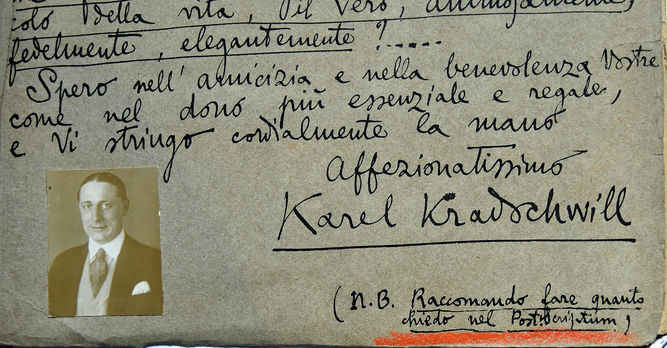 colo della vita, il Vero, animosamente,
fedelmente, elegantemente?.....
Spero nell'amicizia e nella benevolenza Vostre
come nel dono più essenziale e regale,
e Vi stringo cordialmente la mano
Affezionatissimo
Karel Kradschwill
(N.B. Raccomando fare quanto
chiedo nel Postscriptum)